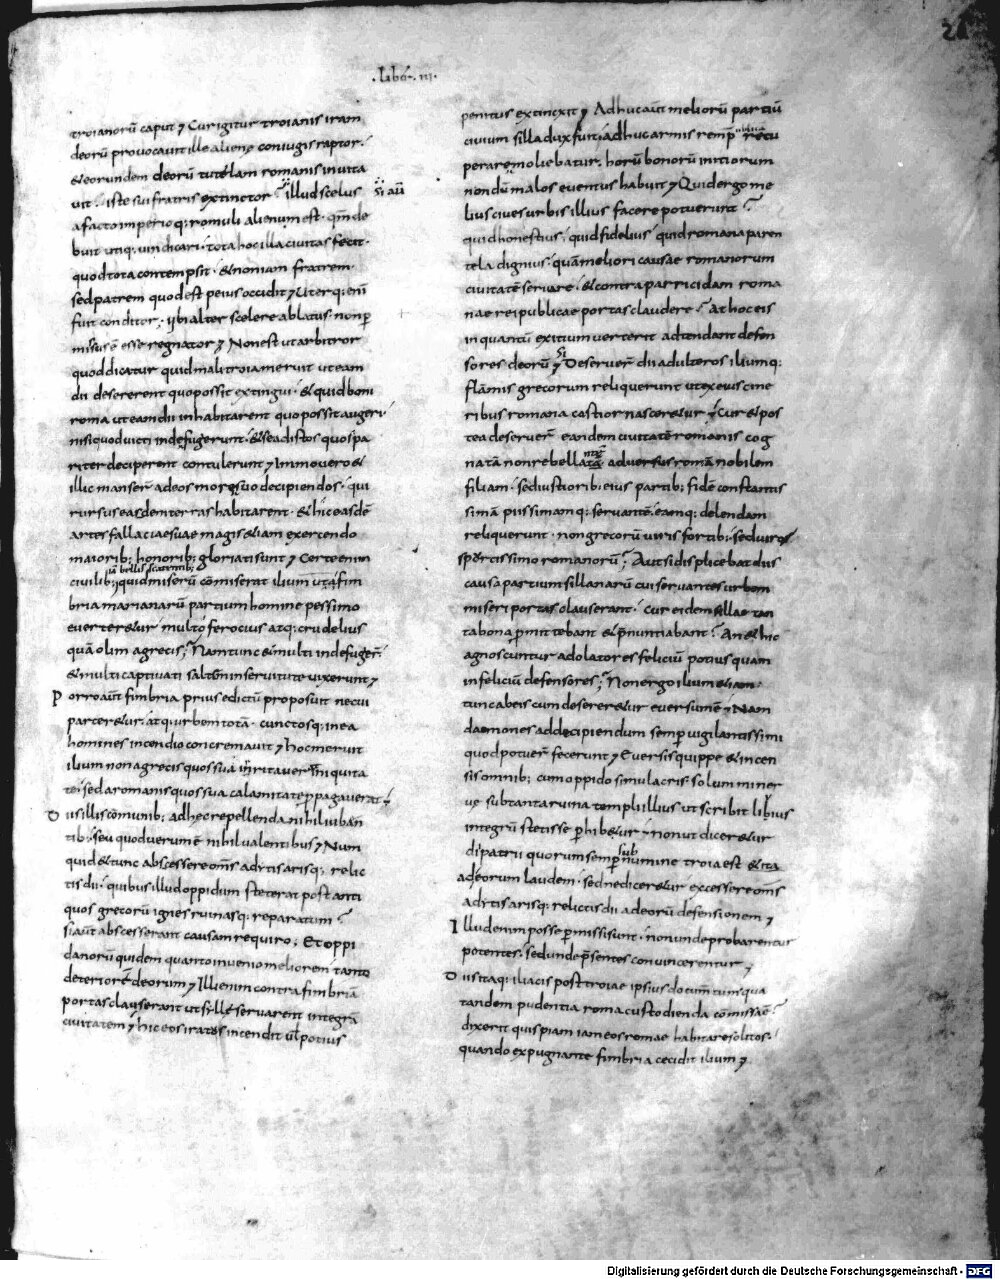 · Liber · III ·
21
troianorū caput ⁊ Cur igitur troianis iram
deorū provocavit ille aliene coniugis raptor.
& eorundem deorū tutelam romanis invita
vit . iste sui fratris extinctor ? illud scelus
si aū
a facto imperio q; romuli alienum est .
buit utiq; vindicari . tota hoc illa civitas fecit .
quod tota contempsit . & non iam fratrem
sed patrem quod est peius occidit ⁊ Uter q; enī
fuit conditor ; ubi alter scelere ablatus non p
misus ē esse regnator ⁊ Non est ut arbitror
quod dicatur quid mali troia meruit ut eam
dii desererent quo possit extingui . & quid boni
roma ut eam dii inhabitarent quo possit augeri
nisi quod victi inde fugerunt . & se ad istos quos pa
riter deciperent contulerunt ⁊ Immo vero &
illic manser ad eos more suo decipiendos . qui
rursus easdem terras habitarent . & hic easdē
artes fallaciae suae magis etiam exercendo
maiorib; honorib; gloriati sunt ⁊ Certe enim
iā bellis scatentib;
civilib; quid miserū commiserat ilium ut a fim
bria marianarū partium homine pessimo
everter&ur multo ferocius atq; crudelius
quā olim a grecis ; Nam tunc & multi inde fuger̄
& multi captivati saltem in servitute vixerunt ⁊
Porro aūt fimbria prius edictū proposuit ne cui
parcer&ur . atq; urbem totā . cunctosq; in ea
homines incendio concremavit ⁊ hoc meruit
ilium non a grecis quos sua irritaverat iniquita
te ; sed a romanis quos sua calamitate ppagaverat ;
Diis illis cōmunib; ad hec repellenda nihil iuvan
tib; seu quod verum ē nihil valentibus ⁊ Num
quid & tunc abscessere oms adytis arisq; relic
tis dii . quibus illud oppidum steterat post anti
quos grecorū ignes ruinasq; reparatum ?
si aūt abscesserant causam requiro ; Et oppi
danorū quidem quanto invenio meliorem tanto
deteriorē deorum ⁊ Illi enim contra fimbriā
portas clauserant ut sylle servarent integrā
civitatem ⁊ hic eos iratus incendit ul potius
penitus extincxit ⁊ Adhuc aūt meliorū partiū
civium silla dux fuit . adhuc armis remp
perare moliebatur . horū bonorū initiorum
nondū malos eventus habuit ⁊ Quid ergo me
lius cives urbis illius facere potuerunt ?
quid honestius . quid fidelius quid romana paren
tela dignius . quā meliori causae romanorum
civitatē servare . & contra parricidam roma
nae rei publicae portas claudere ? At hoc eis
in quantū exitium verterit adtendant defen
sores deorū ⁊ Deseruer̄ dii adulteros iliumq;
si
flāmis grecorum reliquerunt ut ex eius cine
ribus romana castior nascer&ur ; Cur & pos
tea deseruer̄ eandem civitatē romanis cog
natā non rebellatā adversus romā nobilem
filiam . sed iustiorib; eius partib; fidē constantis
simā piissimamq; servantē . eamq; delendam
reliquerunt . non grecorū viris fortib; sed viro
spurcissimo romanorū ; Aut si displicebat diis
causa partium sillanarū cui servantes urbem
miseri portas clauserant . cur eidem sillae tan
ta bona pmittebant & pnuntiabant ? An & hic
agnoscuntur adolatores felicium potius quam
infelicium defensores ; Non ergo ilium etiam
tunc ab eis cum deserer&ur eversum ē ⁊ Nam
daemones ad decipiendum semp vigilantissimi
quod potuer̄ fecerunt ⁊ Eversis quippe & incen
sis omnib; cum oppido simulacris . solum miner
ve sub tanta ruina templi illius ut scribit livius
integrū stetisse phib&ur ; non ut dicer&ur
di patrii quorum semp sub numine troia est & ita
ad eorum laudem . sed ne dicer&ur excessere oms
adytis arisq; relictis dii ad eorū defensionem ⁊
Illud enim posse pmissi sunt . non unde probarentur
potentes . sed unde psentes convincerentur ⁊
Diis itaq; iliacis post troiae ipsius documtum qua
tandem prudentia roma custodienda comissa ē ?
dixerit quispiam iam eos romae habitare solitos .
quando expugnante fimbria cecidit ilium ⁊
Digitalisierung gefördert durch die Deutsche Forschungsgemeinschaft - DFG